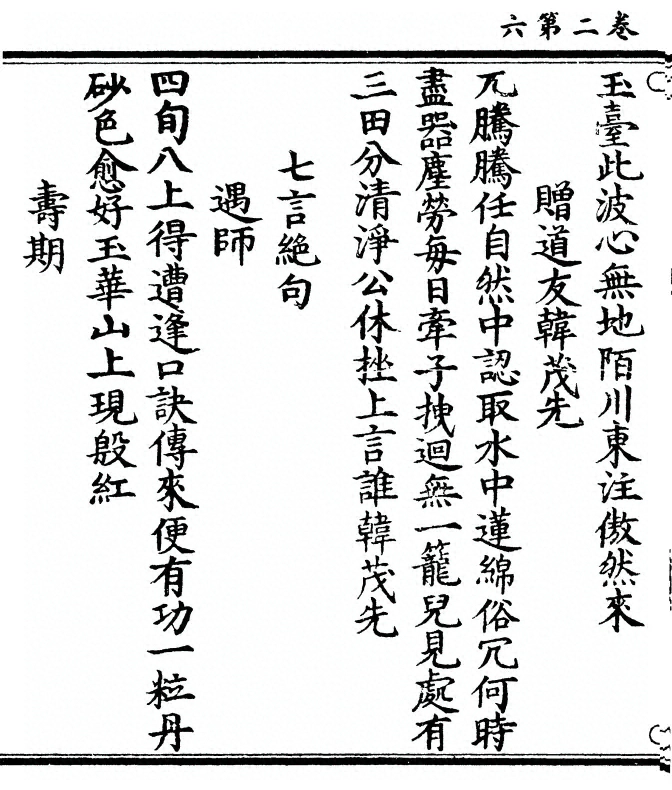 卷二第六
玉臺此波心無地陌川東注傲然來
贈道友韓茂先
兀騰騰任自然中認取水中蓮綿俗冗何時
盡噐塵勞每日牽子拽迴無一籠兒見處有
三田分清淨公休挫上言誰韓茂先
七言絕句
遇師
四旬八上得遭逢口訣傳來便有功一粒丹
砂色愈好玉華山上現殷紅
壽期